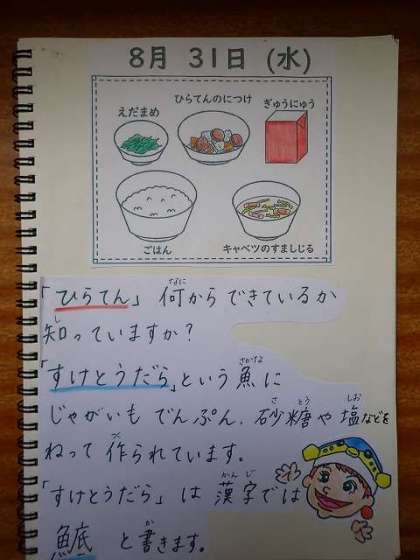 8月 31日 (水)
ひらてんのにつけ
えだまめ
ぎゅうにゅう
ごはん
キャベツのすましじる
「ひらてん」何からできているか
なに
知っていますか?
し
「すけとうだら」という魚に
さかな
じゃがいもでんぷん、砂糖や塩などを
さとう
しお
ねって作られています。
つく
「すけとうだら」は漢字では
かんじ
鯳と書きます。
か